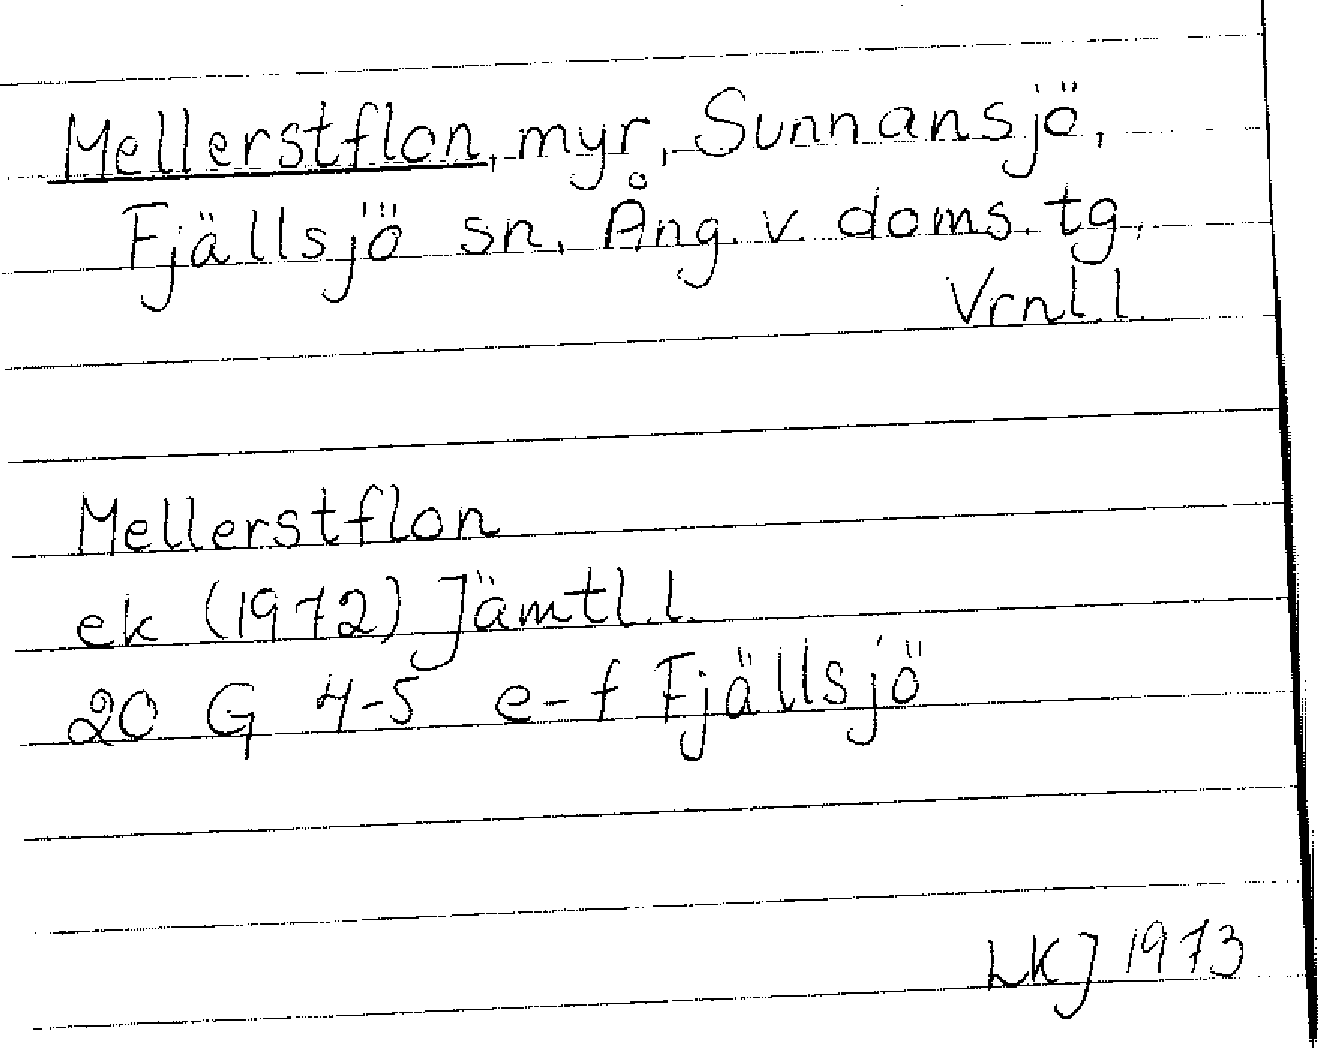 Mellerstflon, myr, Sunnansjö,
Fjällsjö sn, Ång. v. doms. tg,
Vrnl.l.
Mellerstflon
ek (1972) Jämtl.l.
20 G 4-5 e-f Fjällsjö
LKJ 1973